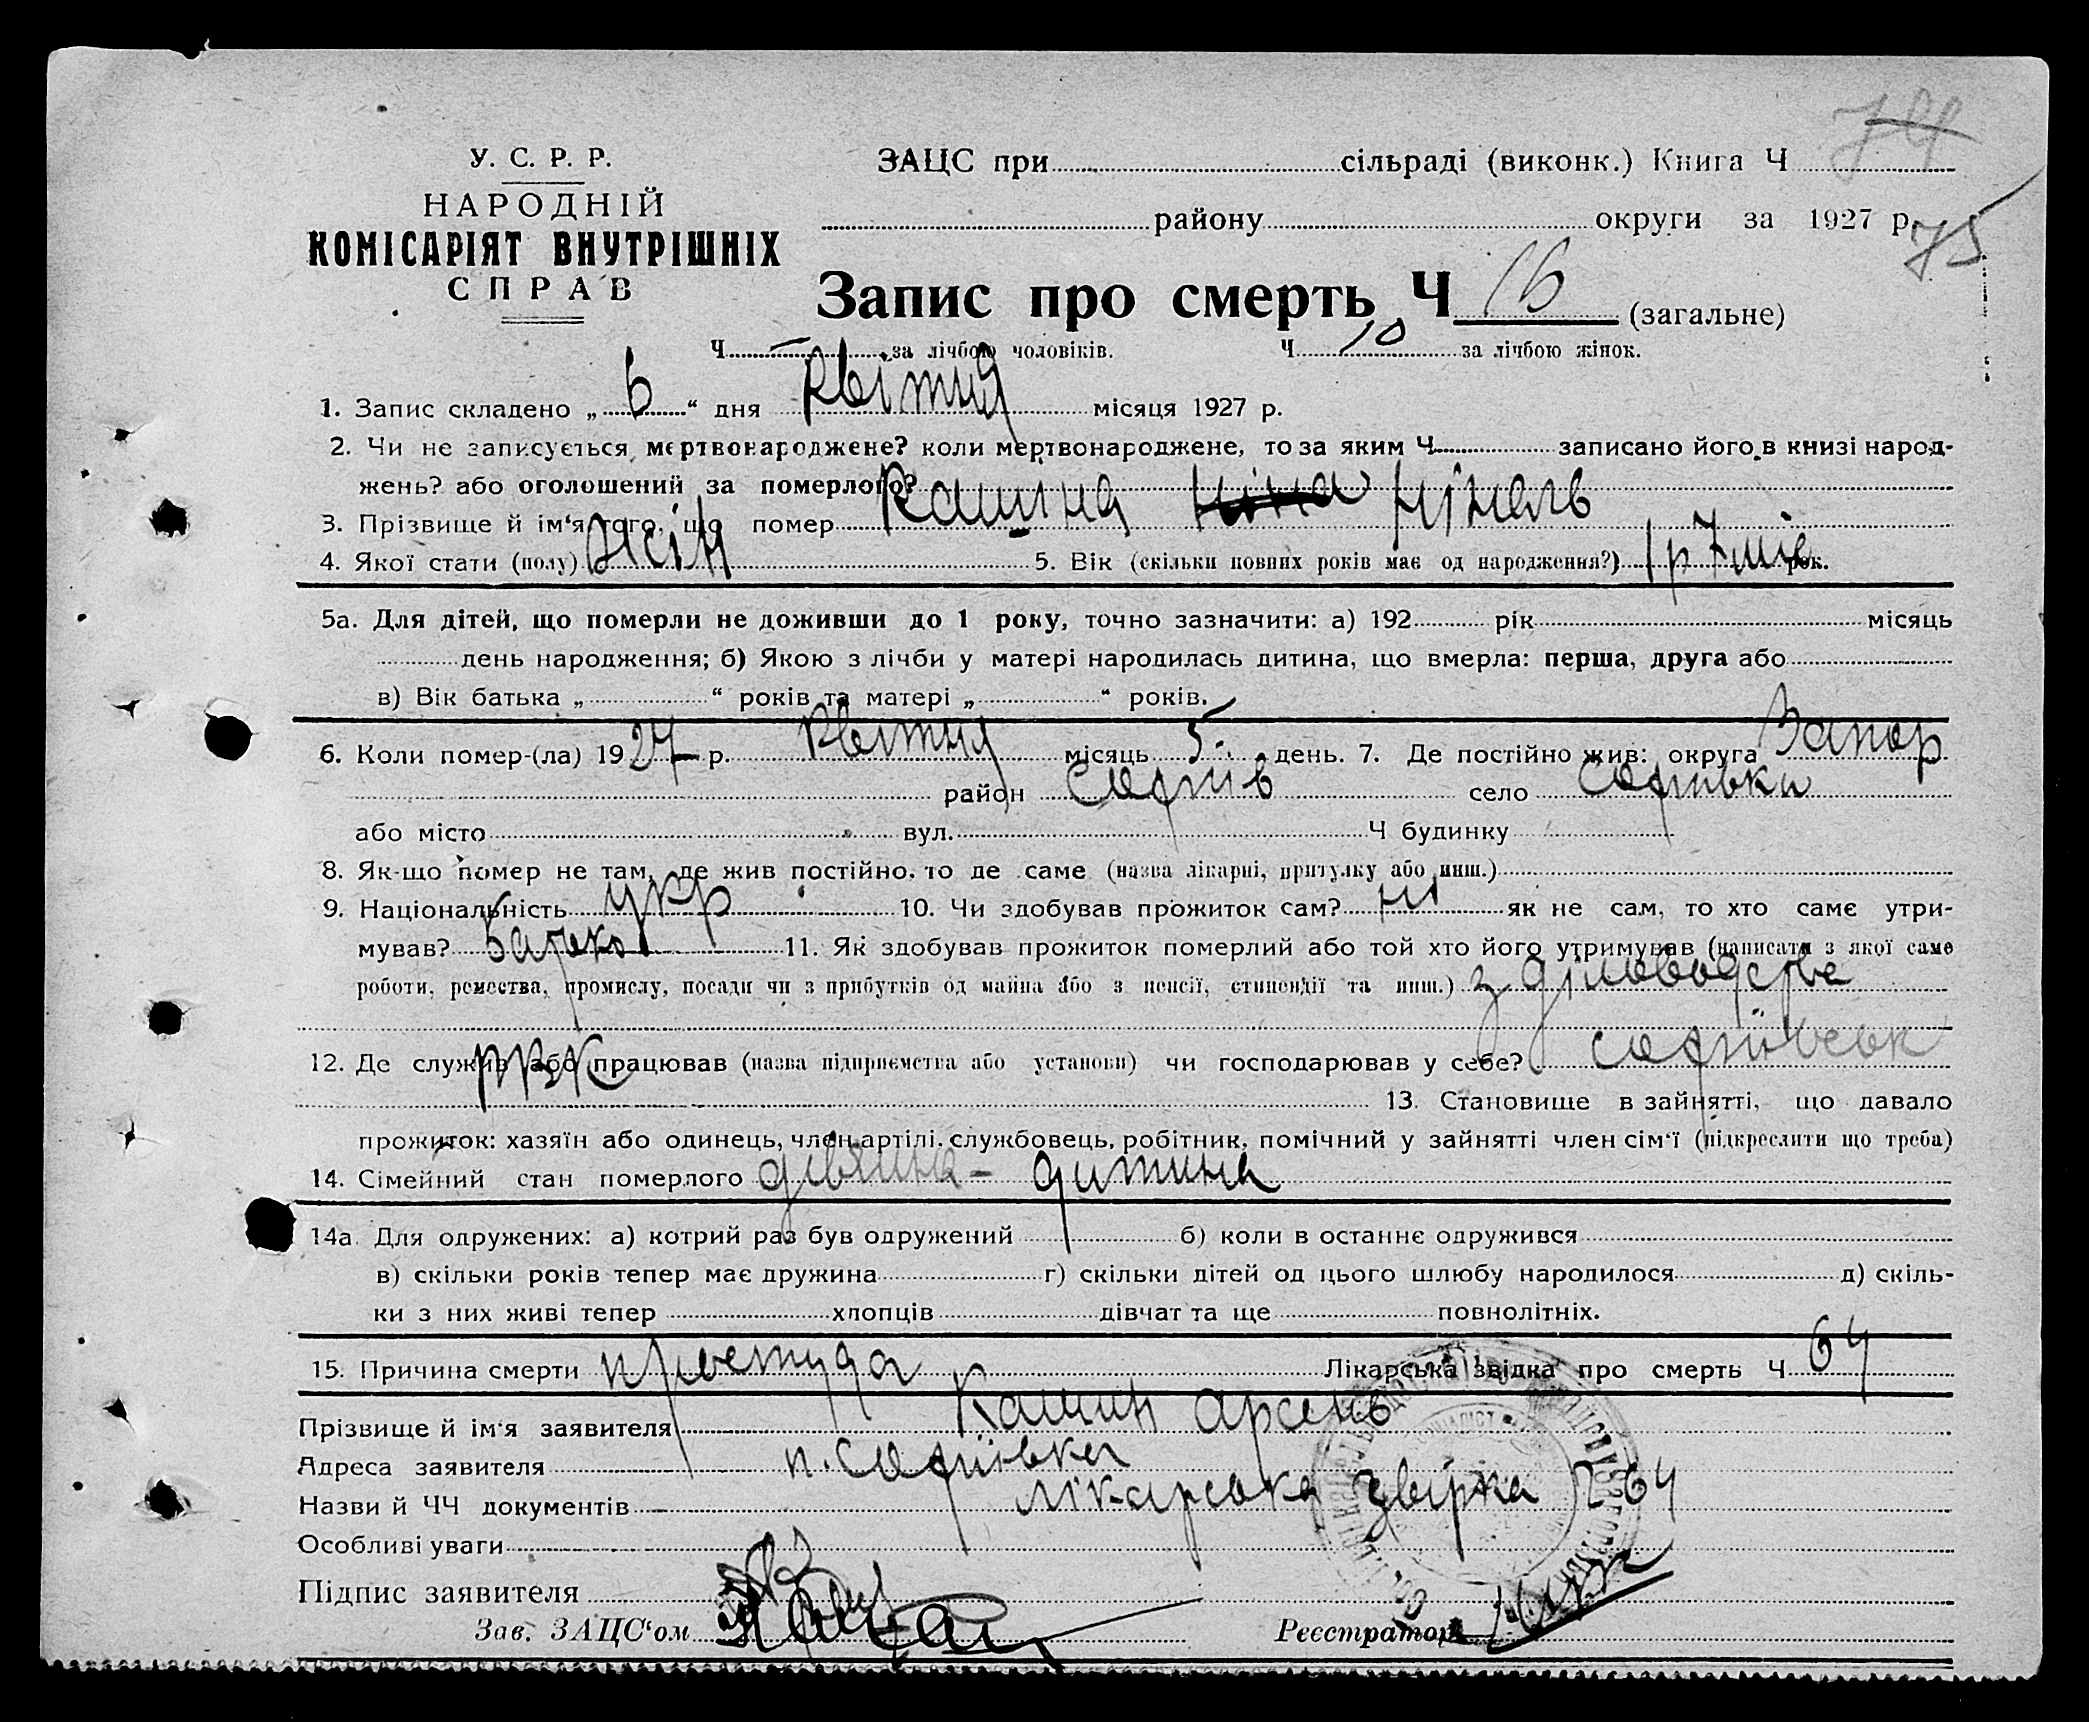 74
У. С. Р. Р.
НАРОДНІЙ
КОМІСАРІЯТ ВНУТРІШНІХ
СПРАВ
ЗАЦС при сільраді (виконк.) Книга Ч
району округи за 1927 р.
75
Запис про смерть Ч 16 (загальне)
Ч — за лічбою чоловіків. Ч 10 за лічбою жінок.
1. Запис складено „ 6 “ дня Квітня місяця 1927 р.
2. Чи не записується мертвонароджене? коли мертвонароджене, то за яким Ч записано його в книзі народ-
жень? або оголошений за померлого?
3. Прізвище й ім‘я того, що помер Кашина Ніна Нінель
4. Якої стати (полу) Жін 5. Вік (скільки повних років має од народження?) 1 р 7 міс рок.
5а. Для дітей, що померли не доживши до 1 року, точно зазначити: а) 192 рік місяць
день народження; б) Якою з лічби у матері народилась дитина, що вмерла: перша, друга або
в) Вік батька „ “ років та матері „ “ років.
6. Коли помер-(ла) 1927 р. Квітня місяць 5 день. 7. Де постійно жив: округа Запор
район Софиїв село Софиївка
або місто вул. Ч будинку
8. Як-що помер не там, де жив постійно, то де саме (назва лікарні, притулку або инш.)
9. Національність укр 10. Чи здобував прожиток сам? ні як не сам, то хто саме утри-
мував? батько 11. Як здобував прожиток померлий або той хто його утримував (написати з якої саме
роботи, ремества, промислу, посади чи з прибутків од майна або з пенсії, стипендії та инш.) з діловодства
12. Де служив або працював (назва підприємства або установи) чи господарював у себе? Софиївськ
РВК 13. Становище в зайнятті, що давало
прожиток: хазяїн або одинець, член артілі, службовець, робітник, помічний у зайнятті член сім‘ї (підкреслити що треба)
14. Сімейний стан померлого дівчина - дитина
14а. Для одружених: а) котрий раз був одружений б) коли в останнє одружився
в) скільки років тепер має дружина г) скільки дітей од цього шлюбу народилося д) скіль-
ки з них живі тепер хлопців дівчат та ще повнолітніх.
15. Причина смерти простуда Лікарська звідка про смерть Ч 64
Прізвище й ім‘я заявителя Кашин Арсень
Адреса заявителя п. Софиївка
Назви й ЧЧ документів лікарська звідка Ч 64
Особливі уваги
Підпис заявителя
Зав. ЗАЦС‘ом Реєстратор